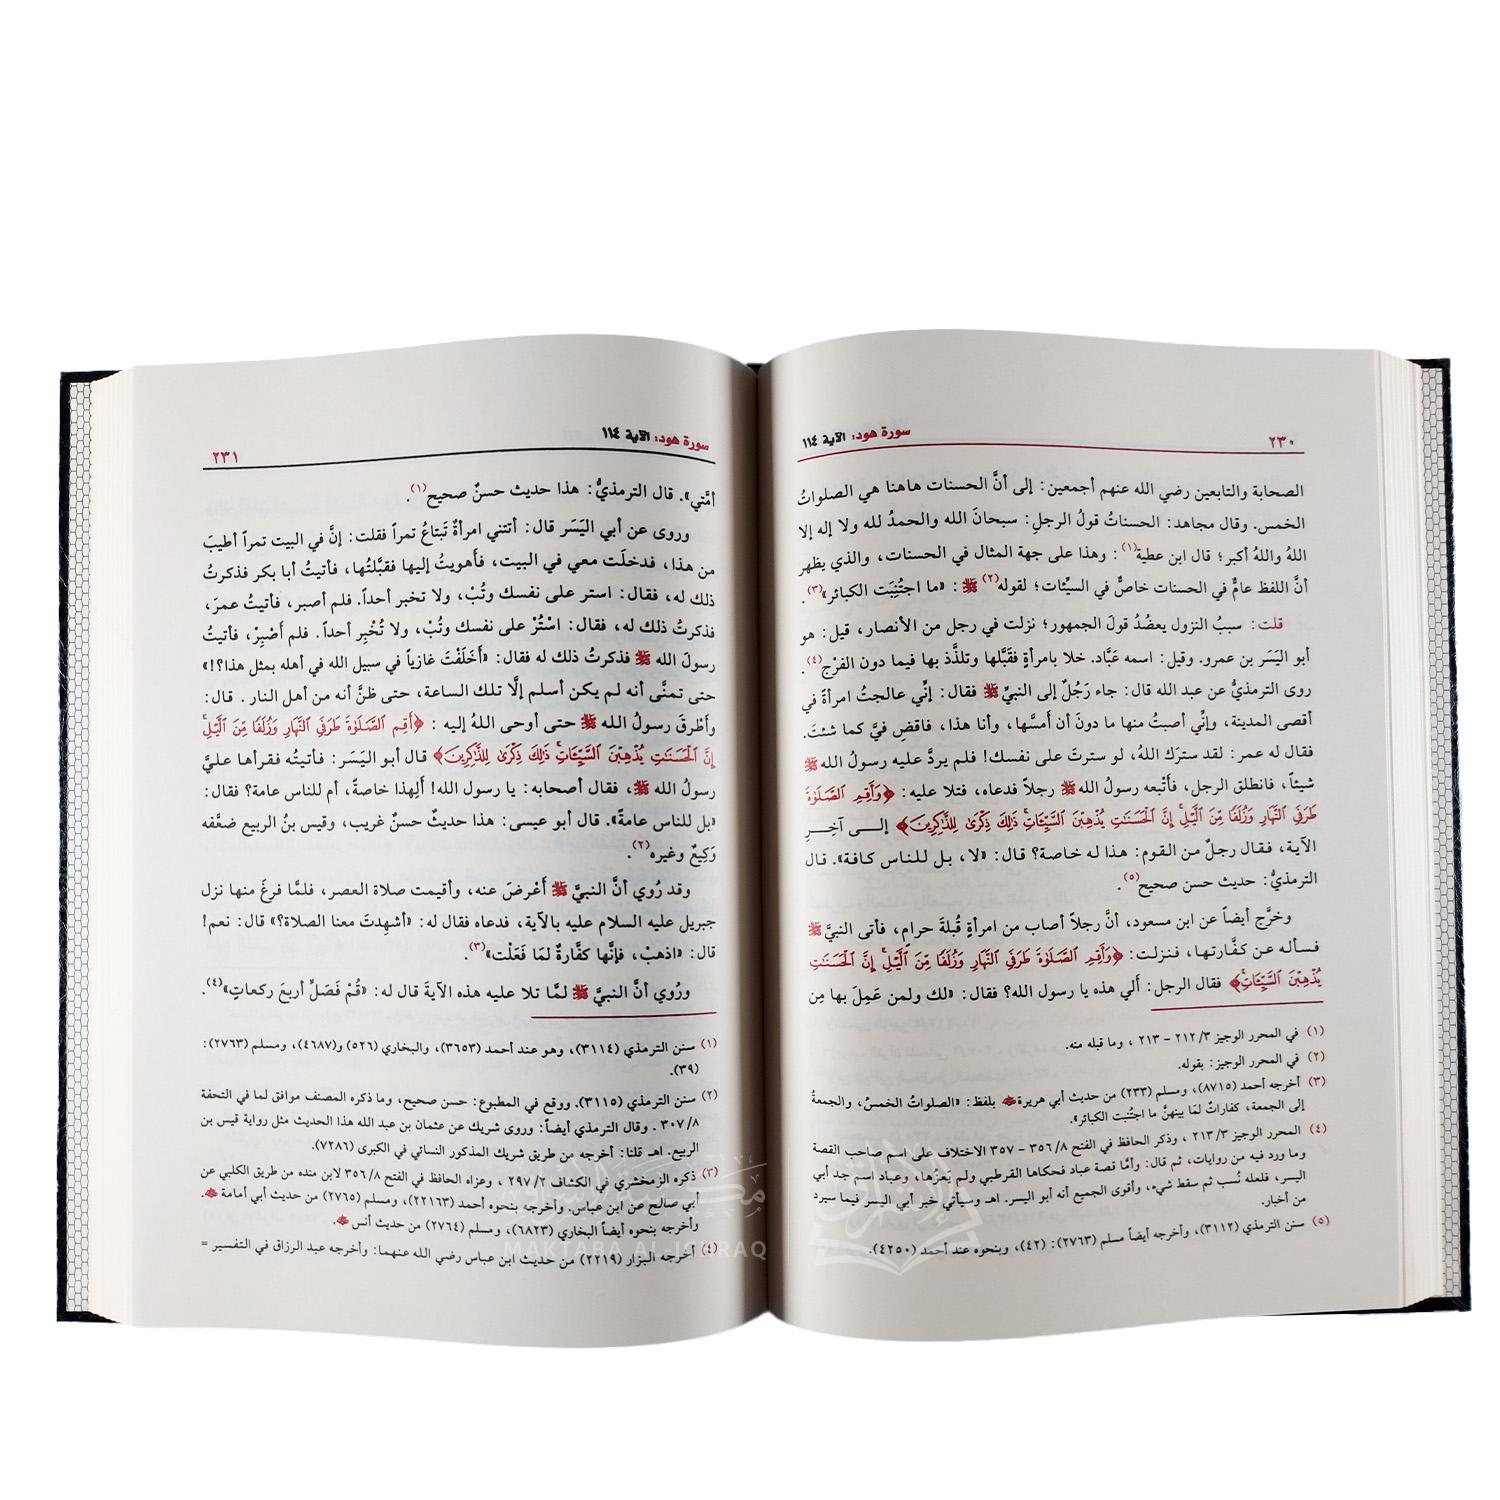 ٢٣٠
سورة هود: الآية ١١٤
الصحابة والتابعين رضي الله عنهم أجمعين: إلى أنَّ الحسنات هاهنا هي الصلواتُ
الخمس. وقال مجاهد: الحسناتُ قولُ الرجلِ: سبحانَ الله والحمدُ لله ولا إله إلا
اللهُ واللهُ أكبر؛ قال ابن عطية(١): وهذا على جهة المثال في الحسنات، والذي يظهر
أنَّ اللفظ عامٌّ في الحسنات خاصٌّ في السيِّئات؛ لقوله(٢) ﷺ: «ما اجتُنِبَت الكبائر»(٣).
قلت: سببُ النزول يعضُدُ قولَ الجمهور؛ نزلت في رجل من الأنصار، قيل: هو
أبو اليَسَر بن عمرو. وقيل: اسمه عَبَّاد. خلا بامرأةٍ فقَبَّلها وتلذَّذ بها فيما دون الفرْج(٤).
روى الترمذيُّ عن عبد الله قال: جاء رَجُلٌ إلى النبيِّ ﷺ فقال: إنِّي عالجتُ امرأةً في
أقصى المدينة، وإنِّي أصبتُ منها ما دونَ أن أمسَّها، وأنا هذا، فاقضِ فيَّ كما شئتَ.
فقال له عمر: لقد سترَك اللهُ، لو سترتَ على نفسك! فلم يردَّ عليه رسولُ الله ﷺ
شيئاً، فانطلق الرجل، فأَتْبعه رسولُ الله ﷺ رجلاً فدعاه، فتلا عليه: ﴿وَأَقِمِ ٱلصَّلَوٰةَ
طَرَفَيِ ٱلنَّهَارِ وَزُلَفًا مِّنَ ٱلَّيْلِۚ إِنَّ ٱلْحَسَنَٰتِ يُذْهِبْنَ ٱلسَّيِّـَٔاتِۚ ذَٰلِكَ ذِكْرَىٰ لِلذَّٰكِرِينَ﴾ إلى آخِرِ
الآية، فقال رجلٌ من القوم: هذا له خاصة؟ قال: «لا، بل للناس كافة». قال
الترمذيُّ: حديث حسن صحيح(٥).
وخرَّج أيضاً عن ابن مسعود، أنَّ رجلاً أصاب من امرأةٍ قُبلةَ حرام، فأتى النبيَّ ﷺ
فسأله عن كفَّارتها، فنزلت: ﴿وَأَقِمِ ٱلصَّلَوٰةَ طَرَفَيِ ٱلنَّهَارِ وَزُلَفًا مِّنَ ٱلَّيْلِۚ إِنَّ ٱلْحَسَنَٰتِ
يُذْهِبْنَ ٱلسَّيِّـَٔاتِۚ﴾ فقال الرجل: أَلي هذه يا رسول الله؟ فقال: «لك ولمن عَمِلَ بها مِن
(١) في المحرر الوجيز ٣/ ٢١٢ - ٢١٣ ، وما قبله منه.
(٢) في المحرر الوجيز: بقوله.
(٣) أخرجه أحمد (٨٧١٥)، ومسلم (٢٣٣) من حديث أبي هريرة ؓ بلفظ: «الصلواتُ الخمسُ، والجمعةُ
إلى الجمعة، كفاراتٌ لمَا بينهنَّ ما اجتُنبت الكبائر».
(٤) المحرر الوجيز ٣/ ٢١٣ ، وذكر الحافظ في الفتح ٨/ ٣٥٦ - ٣٥٧ الاختلاف على اسم صاحب القصة
وما ورد فيه من روايات، ثم قال: وأمَّا قصة عباد فحكاها القرطبي ولم يَعزُها، وعباد اسم جد أبي
اليسر، فلعله نُسب ثم سقط شيء، وأقوى الجميع أنه أبو اليسر. اهـ وسيأتي خبر أبي اليسر فيما سيرد
من أخبار.
(٥) سنن الترمذي (٣١١٢)، وأخرجه أيضاً مسلم (٢٧٦٣): (٤٢)، وبنحوه عند أحمد (٤٢٥٠).
سورة هود: الآية ١١٤
٢٣١
أمَّتي». قال الترمذيُّ: هذا حديث حسنٌ صحيح(١).
وروى عن أبي اليَسَر قال: أتتني امرأةٌ تَبتاعُ تمراً فقلت: إنَّ في البيت تمراً أطيبَ
من هذا، فدخلَت معي في البيت، فأَهويتُ إليها فقبَّلتُها، فأتيتُ أبا بكر فذكرتُ
ذلك له، فقال: استر على نفسك وتُبْ، ولا تخبر أحداً. فلم أصبر، فأتيتُ عمرَ،
فذكرتُ ذلك له، فقال: اسْتُرْ على نفسك وتُبْ، ولا تُخْبِر أحداً. فلم أَصْبِرْ، فأتيتُ
رسولَ الله ﷺ فذكرتُ ذلك له فقال: «أَخَلَفْتَ غازياً في سبيل الله في أهله بمثل هذا؟!»
حتى تمنَّى أنه لم يكن أسلم إلَّا تلك الساعة، حتى ظنَّ أنه من أهل النار. قال:
وأطْرقَ رسولُ الله ﷺ حتى أوحى اللهُ إليه: ﴿أَقِمِ ٱلصَّلَوٰةَ طَرَفَيِ ٱلنَّهَارِ وَزُلَفًا مِّنَ ٱلَّيْلِۚ
إِنَّ ٱلْحَسَنَٰتِ يُذْهِبْنَ ٱلسَّيِّـَٔاتِۚ ذَٰلِكَ ذِكْرَىٰ لِلذَّٰكِرِينَ﴾ قال أبو اليَسَر: فأتيتُه فقرأها عليَّ
رسولُ الله ﷺ، فقال أصحابه: يا رسول الله! أَلِهذا خاصةً، أم للناس عامة؟ فقال:
«بل للناس عامةً». قال أبو عيسى: هذا حديثٌ حسنٌ غريب، وقيس بنُ الربيع ضعَّفه
وَكِيعٌ وغيره(٢).
وقد رُوي أنَّ النبيَّ ﷺ أَعْرضَ عنه، وأقيمت صلاة العصر، فلمَّا فرغَ منها نزل
جبريل عليه السلام عليه بالآية، فدعاه فقال له: «أشهِدتَ معنا الصلاة؟» قال: نعم!
قال: «اذهبْ، فإنَّها كفَّارةٌ لمَا فَعَلْت»(٣).
ورُوي أنَّ النبيَّ ﷺ لمَّا تلا عليه هذه الآيةَ قال له: «قُمْ فَصَلِّ أربعَ ركعاتٍ»(٤).
(١) سنن الترمذي (٣١١٤)، وهو عند أحمد (٣٦٥٣)، والبخاري (٥٢٦) و(٤٦٨٧)، ومسلم (٢٧٦٣):
(٣٩).
(٢) سنن الترمذي (٣١١٥). ووقع في المطبوع: حسن صحيح، وما ذكره المصنف موافق لما في التحفة
٨/ ٣٠٧ . وقال الترمذي أيضاً: وروى شريك عن عثمان بن عبد الله هذا الحديث مثل رواية قيس بن
الربيع. اهـ قلنا: أخرجه من طريق شريك المذكور النسائي في الكبرى (٧٢٨٦).
(٣) ذكره الزمخشري في الكشاف ٢/ ٢٩٧ ، وعزاه الحافظ في الفتح ٨/ ٣٥٦ لابن منده من طريق الكلبي عن
أبي صالح عن ابن عباس. وأخرجه بنحوه أحمد (٢٢١٦٣)، ومسلم (٢٧٦٥) من حديث أبي أمامة ؓ.
وأخرجه بنحوه أيضاً البخاري (٦٨٢٣)، ومسلم (٢٧٦٤) من حديث أنس ؓ.
(٤) أخرجه البزار (٢٢١٩) من حديث ابن عباس رضي الله عنهما: وأخرجه عبد الرزاق في التفسير =
مكتبة الإشراق
MAKTABA AL-ISHRAQ